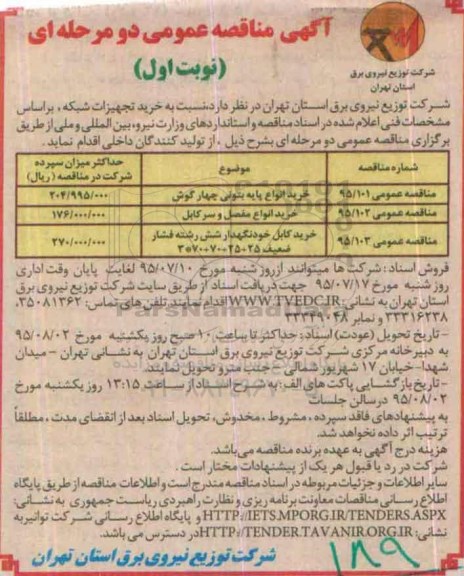 آگهی مناقصه عمومی دو مرحله ای
(نوبت اول)
شرکت توزیع نیروی برق
استان تهران
شرکت توزیع نیروی برق استان تهران در نظر دارد نسبت به خرید تجهیزات شبکه ، براساس
مشخصات فنی اعلام شده در اسناد مناقصه و استانداردهای وزارت نیرو، بین المللی و ملی از طریق
برگزاری مناقصه عمومی دو مرحله ای بشرح ذیل ، از تولید کنندگان داخلی اقدام نماید .
شماره مناقصه موضوع حداکثر میزان سپرده شرکت در مناقصه (ریال)
مناقصه عمومی ۹۵/۱۰۱ خرید انواع پایه بتونی چهار گوش ۲۰۴/۹۹۵/۰۰۰
مناقصه عمومی ۹۵/۱۰۲ خرید انواع مفصل و سرکابل ۱۷۶/۰۰۰/۰۰۰
مناقصه عمومی ۹۵/۱۰۳ خرید کابل خودنگهدار شش رشته فشار ضعیف ۲۵+۲۵+۷۰+۷۰*۳ ۲۷۰/۰۰۰/۰۰۰
فروش اسناد: شرکت ها میتوانند از روز شنبه مورخ ۹۵/۰۷/۱۰ لغایت پایان وقت اداری
روز شنبه مورخ ۹۵/۰۷/۱۷ جهت دریافت اسناد از طریق سایت شرکت توزیع نیروی برق
استان تهران به نشانی: WWW.TVEDC.IR اقدام نمایند تلفن های تماس: ۳۵۰۸۱۳۶۲،
۳۳۳۱۶۲۳۸ و نمابر ۳۳۳۴۹۰۴۸
- تاریخ تحویل (عودت) اسناد: حداکثر تا ساعت ۱۰ صبح روز یکشنبه مورخ ۹۵/۰۸/۰۲
به دبیرخانه مرکزی شرکت توزیع نیروی برق استان تهران به نشانی تهران - میدان
شهدا-خیابان ۱۷ شهریور شمالی - جنب مترو تحویل نمایند.
- تاریخ بازگشایی پاکت های الف: به شرح اسناد از ساعت ۱۳:۱۵ روز یکشنبه مورخ
۹۵/۰۸/۰۲ در سالن جلسات
به پیشنهادهای فاقد سپرده ، مشروط ، مخدوش، تحویل اسناد بعد از انقضای مدت ، مطلقاً
ترتیب اثر داده نخواهد شد.
هزینه درج آگهی به عهده برنده مناقصه می‌باشد.
شرکت در رد یا قبول هر یک از پیشنهادات مختار است .
سایر اطلاعات و جزئیات مربوطه در اسناد مناقصه مندرج است و اطلاعات مناقصه از طریق پایگاه
اطلاع رسانی مناقصات معاونت برنامه ریزی و نظارت راهبردی ریاست جمهوری به نشانی:
HTTP://IETS.MPORG.IR/TENDERS.ASPX و پایگاه اطلاع رسانی شرکت توانیر به
نشانی: HTTP://TENDER.TAVANIR.ORG.IR در دسترس می باشد.
شرکت توزیع نیروی برق استان تهران
۱۸۹